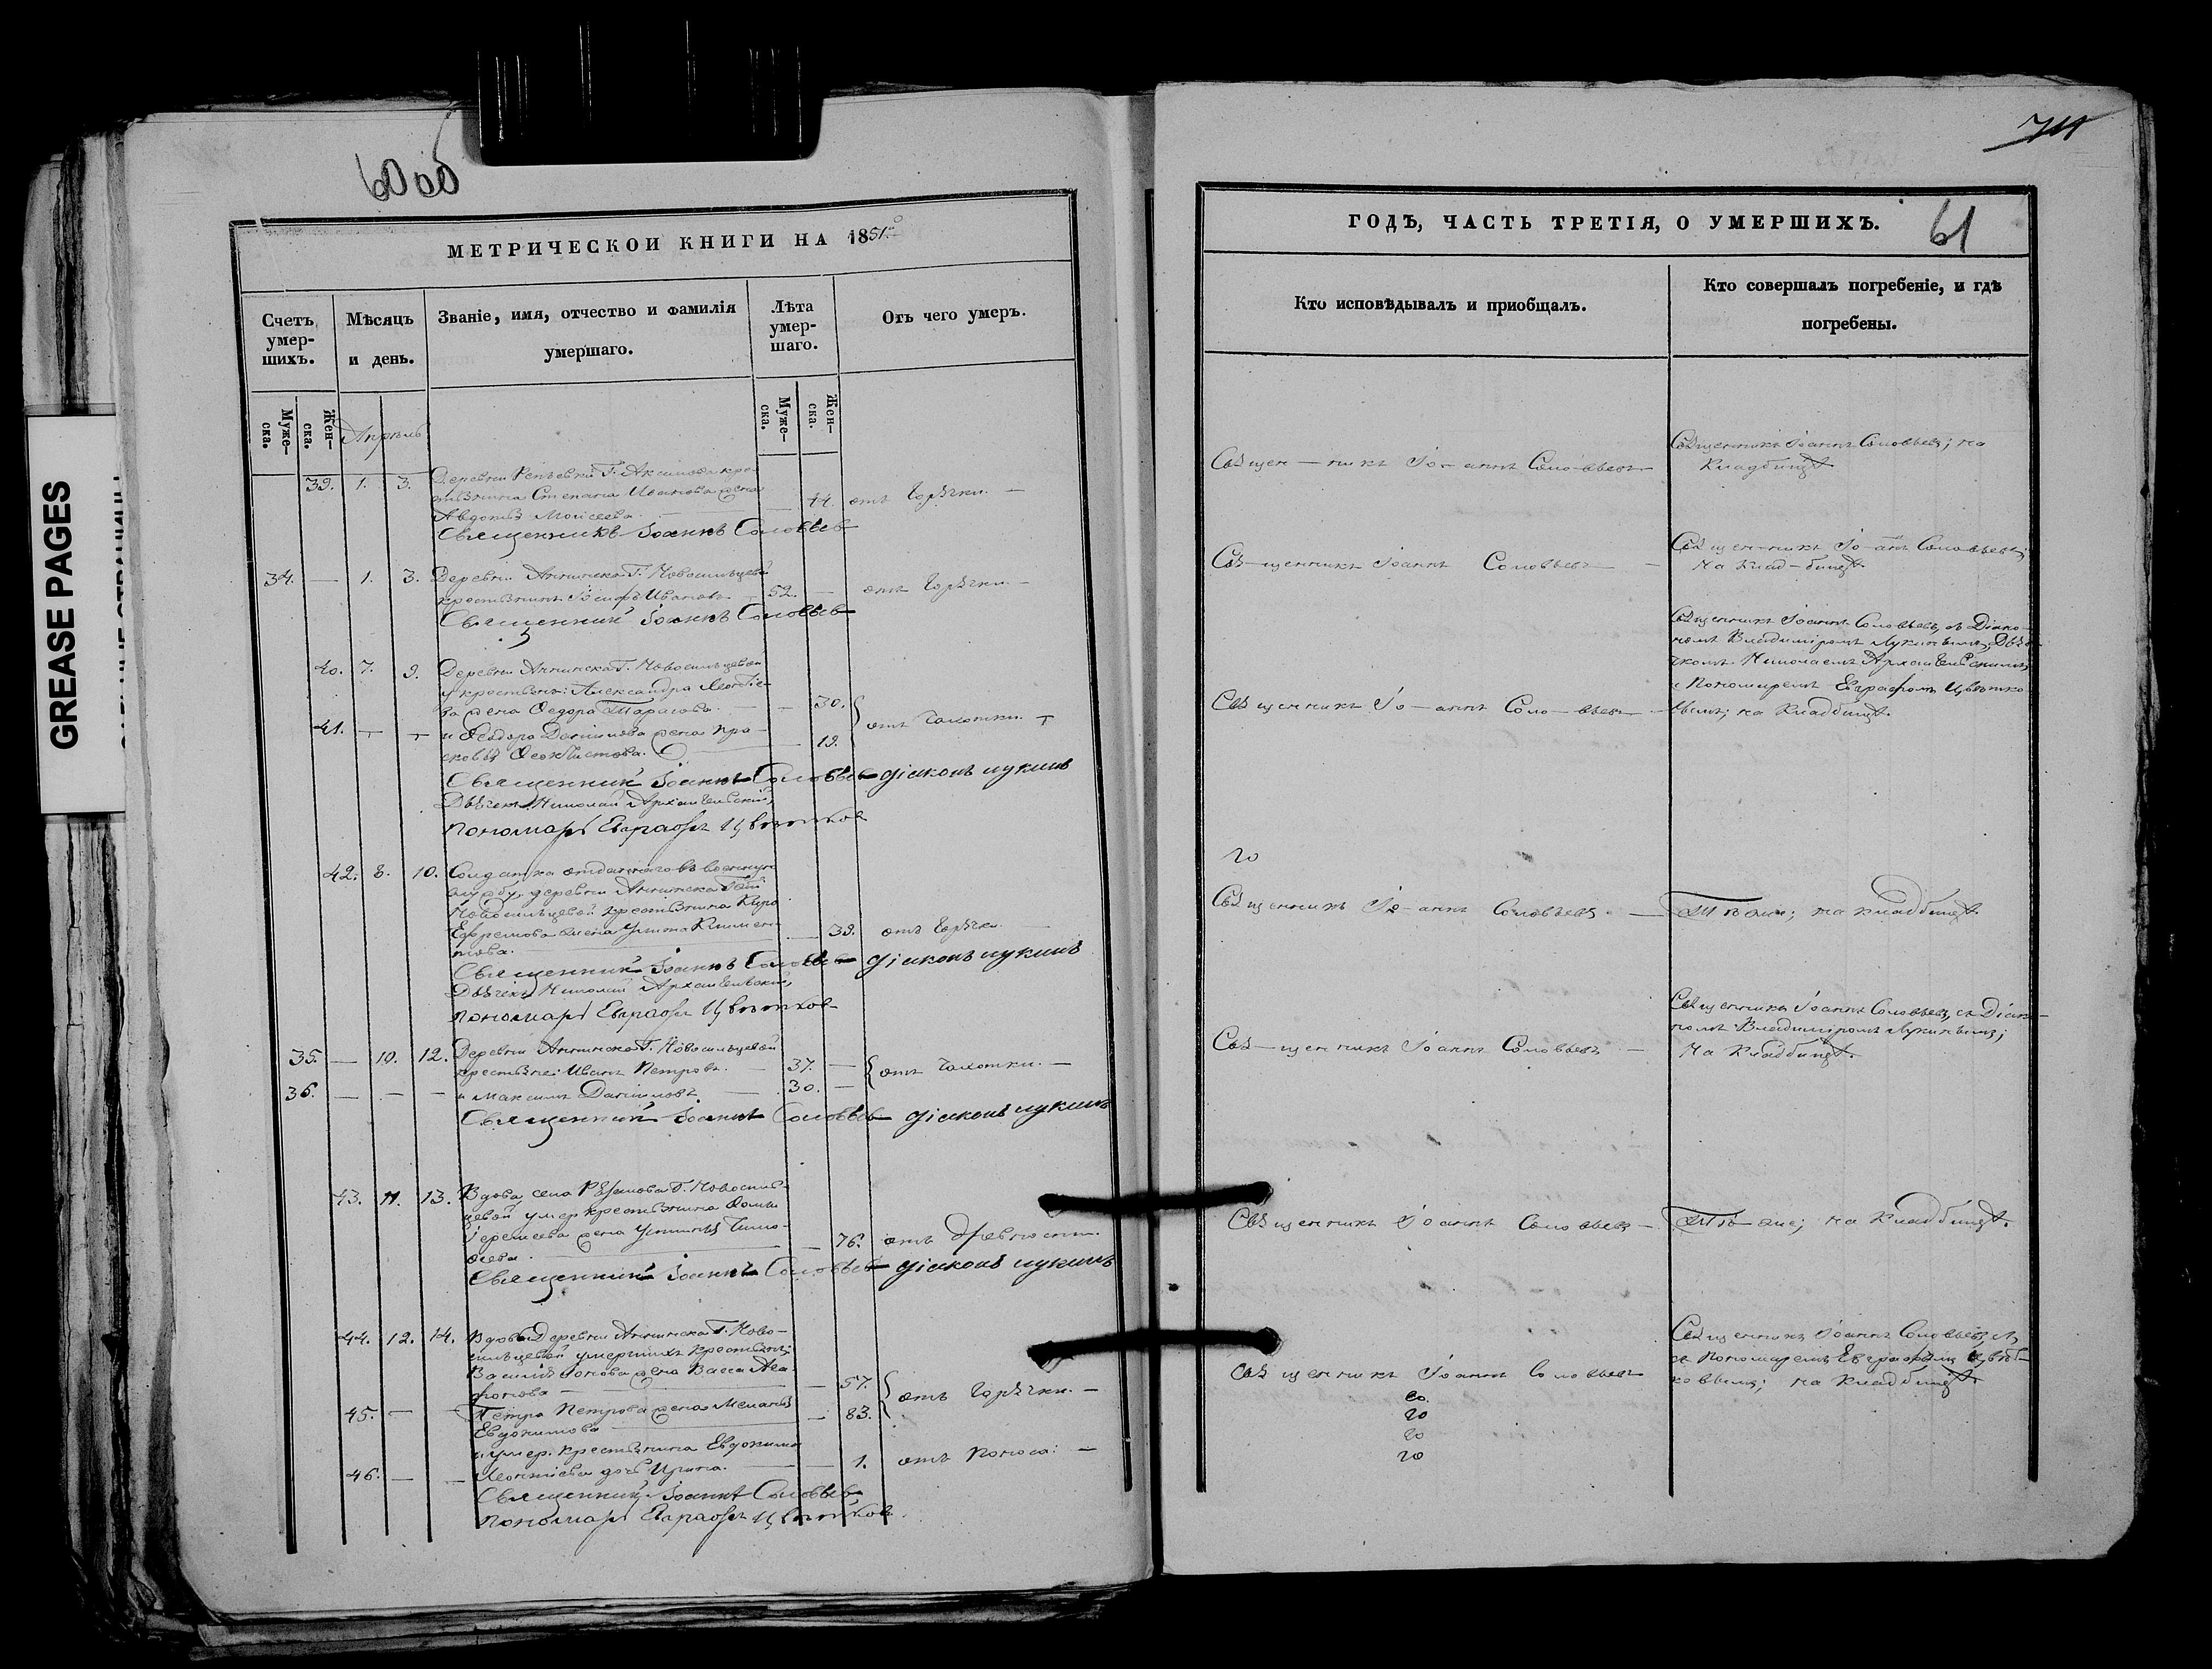 60 об
МЕТРИЧЕСКОЙ КНИГИ НА 1851.
Счетъ умер-шихъ.
Мѣсяцъ и день.
Званіе, имя, отчество и фамилія умершаго.
Лѣта умер-шаго.
Отъ чего умеръ.
Муже-ска.
Жен-ска.
Муже-ска.
Жен-ска.
Апрѣль
39. 1. 3. Деревни Репьевки Г. Аксакова кре-
стьянина Степана Иванова жена
Авдотья Моисеева. 44. отъ горячки. —
Священникъ Іоаннъ Соловьев
34. — 1. 3. Деревни Аннинска Г. Новосильцевой
крестьянинъ Іосифъ Ивановъ 52. — отъ горячки. —
Священник Іоаннъ Соловьев
40. 7. 9. Деревни Аннинска Г. Новосильцевой
у крестьянъ: Александра Леонтіе-
ва жена Федора Тарасова. — 30.
отъ чахотки. —
41. — — и Феодора Данилова жена Пра-
сковья Феоктистова. 19.
Священник Іоаннъ Соловьев діаконъ Лукинъ
Дьячекъ Николай Архангельскій,
пономарь Евграфъ Цветков
42. 8. 10. Солдатка отданнаго въ военную
службу деревни Аннинска Г-жи
Новосильцевой крестьянина Кира
Ефремова жена Улита Климен-
това. 39. отъ горячки. —
Священник Іоаннъ Соловьев діаконъ Лукинъ
Дьячекъ Николай Архангельскій,
пономарь Евграфъ Цветков
35. — 10. 12. Деревни Аннинска Г. Новосильцевой
крестьяне: Иванъ Петровъ. — 37. —
отъ чахотки. —
36. — — — и Максимъ Даниловъ 30. —
Священник Іоаннъ Соловьев діаконъ Лукинъ
43. 11. 13. Вдова села Рѣзанова Г. Новосиль-
цевой умер. крестьянина Фомы
Іеремеева жена Устинья Тимо-
феева. 76. отъ древности.
Священник Іоаннъ Соловьев діаконъ Лукинъ
44. 12. 14. Вдовы Деревни Аннинска Г. Ново-
сильцевой умершихъ крестьянъ:
Василья жена Васса Ага-
фонова — 57.
отъ горячки. —
45. — — Петра Петрова жена Меланья
Евдокимова 83.
и умер. крестьянина Евдокима
46. — — Леонтіева дочь Ирина. 1. отъ поноса: —
Священник Іоаннъ Соловьев
пономарь Евграфъ Цветков
ГОДЪ, ЧАСТЬ ТРЕТІЯ, О УМЕРШИХЪ.
61
Кто исповѣдывалъ и пріобщалъ.
Кто совершалъ погребеніе, и гдѣ погребены.
Священникъ Іоаннъ Соловьевъ
Священникъ Іоаннъ Соловьевъ; на
кладбищѣ.
Священникъ Іоаннъ Соловьевъ
Священникъ Іоаннъ Соловьевъ;
на кладбищѣ.
Священникъ Іоаннъ Соловьевъ
Священникъ Іоаннъ Соловьевъ, съ Діако-
номъ Владиміромъ Лукинымъ, Дья-
чкомъ Николаемъ Архангельскимъ
и Пономаремъ Евграфомъ Цвѣтко-
вымъ; на кладбищѣ.
Священникъ Іоаннъ Соловьевъ. —
Тѣ же; на кладбищѣ.
Священникъ Іоаннъ Соловьевъ —
Священникъ Іоаннъ Соловьевъ, съ Діако-
номъ Владиміромъ Лукинымъ;
на кладбищѣ.
Священникъ Іоаннъ Соловьевъ —
Тѣ же; на кладбищѣ.
Священникъ Іоаннъ Соловьевъ
Священникъ Іоаннъ Соловьевъ,
съ Пономаремъ Евграфомъ Цвѣт-
ковымъ; на кладбищѣ.
GREASE PAGES